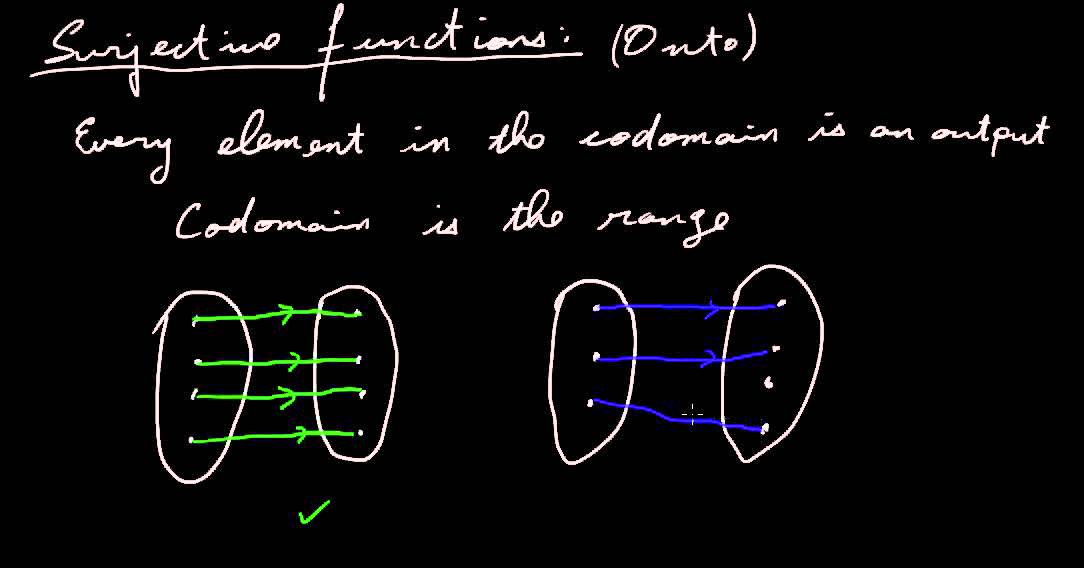 Surjective functions: (Onto)
Every element in the codomain is an output
Codomain is the range